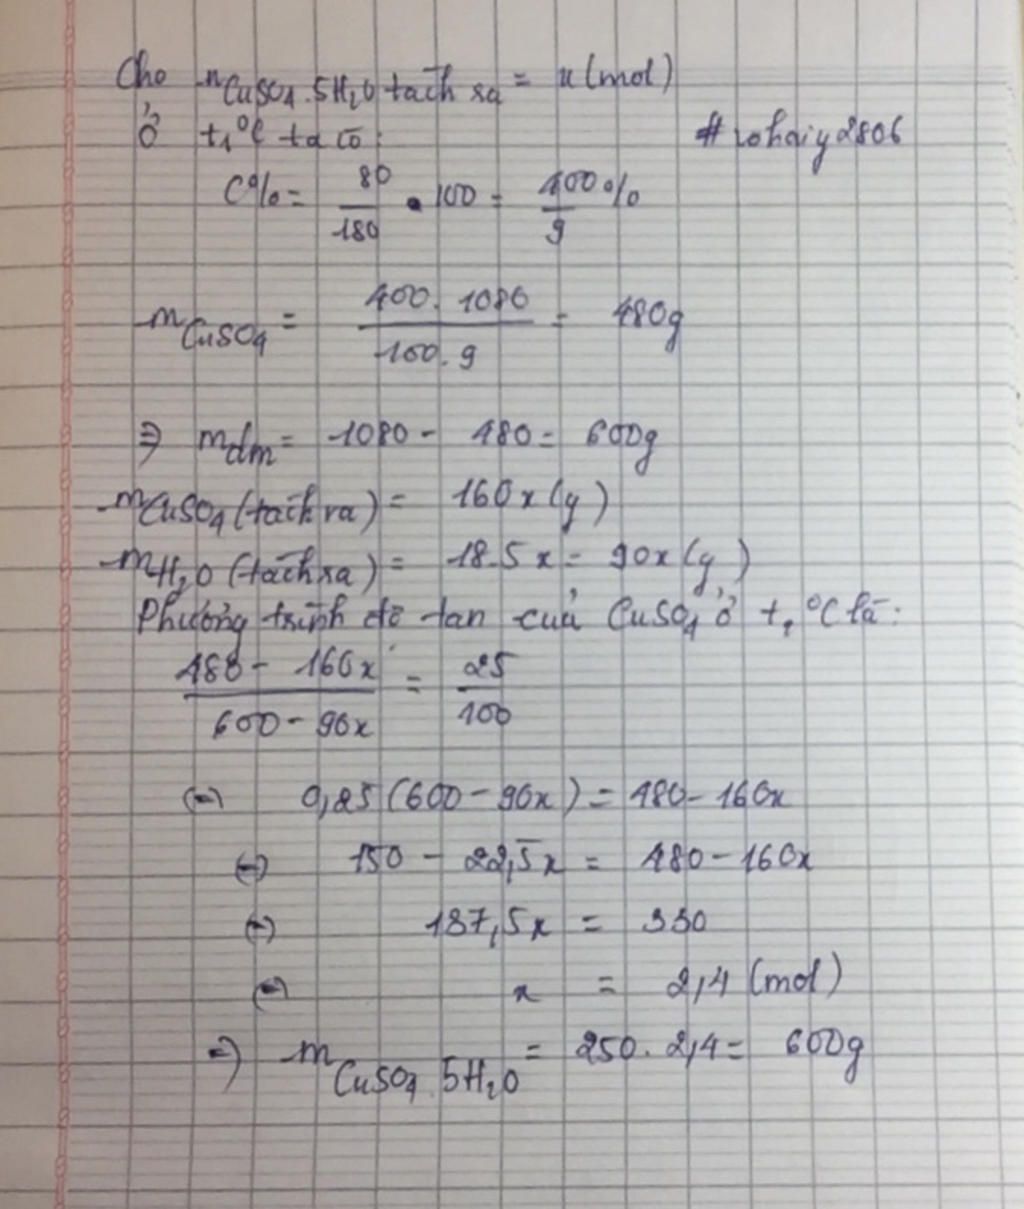 Cho nCuSO4.5H2O tách ra = x (mol)
Ở t1°C ta có:
#lohaiy2806
C% = 80/180 . 100 = 400/9 %
mCuSO4 = 400.1080/100.9 = 480g
=> mdm = 1080 - 480 = 600g
mCuSO4 (tách ra) = 160x (g)
mH2O (tách ra) = 18.5x = 90x (g)
Phương trình độ tan của CuSO4 ở t1°C là:
480 - 160x/600 - 90x = 25/100
(=) 0,25(600 - 90x) = 480 - 160x
(=) 150 - 22,5x = 480 - 160x
(=) 137,5x = 330
(=) x = 2,4 (mol)
=) mCuSO4.5H2O = 250.2,4 = 600g